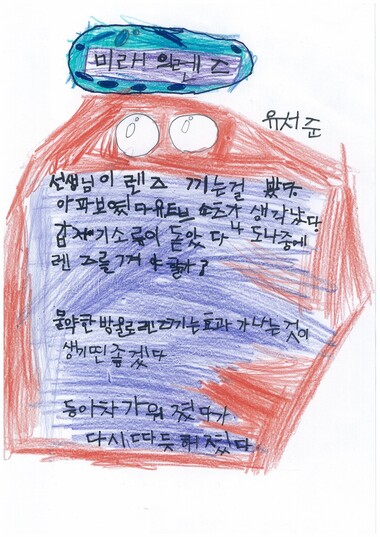 미래 의렌즈
유서준
선생님이 렌즈 끼는걸 봤다
아파보였다 유튜브 쇼츠가 생각났다
갑자기소름이 돋았 다 나 도나중에
렌 즈를껴 야 할까?
물약한 방울로렌즈끼는효과 가나는 것이
생기면 좋 겠다
등이차 가워 졌다가
다시 따 듯 해 졌다